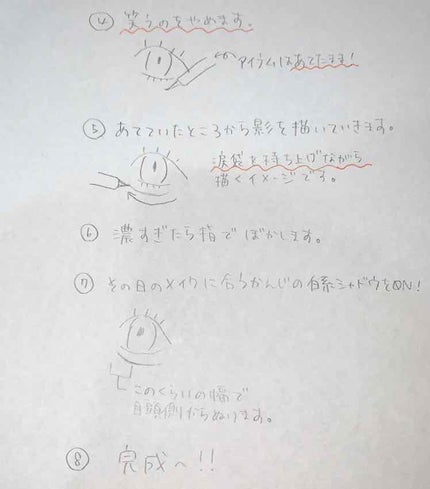 ④ 笑うのをやめます。
アイテムはあてたまま!
⑤ あてていたところから影を描いていきます。
涙袋を持ち上げながら
描くイメージです。
⑥ 濃すぎたら指でぼかします。
⑦ その日のメイクに合うかんじの 系シャドウをON!
このくらいの幅で
目頭側からぬります。
⑧ 完成〜!!